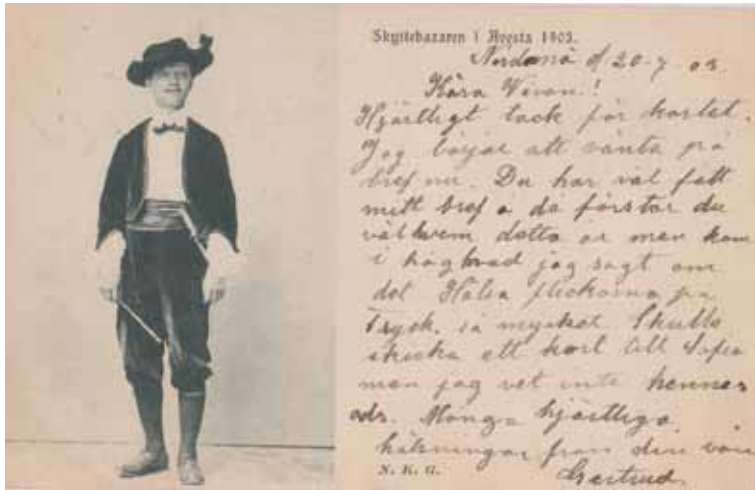 Skyttebazaren i Avesta 1903.
Nordanö d/ 20-7 03.
Kära Vivan!
Hjärtligt tack för kortet.
Jag börjar att vänta på
bref nu. Du har väl fått
mitt bref o då förstår du
väl hvem detta är men kom
i håg hvad jag sagt om
det Hälsa flickorna på
Tryck. så mycket Skulle
skicka ett kort till Sofia
men jag vet inte hennes
adr. Många hjärtliga
hälsningar från din vän
N. K. G.
Gertrud